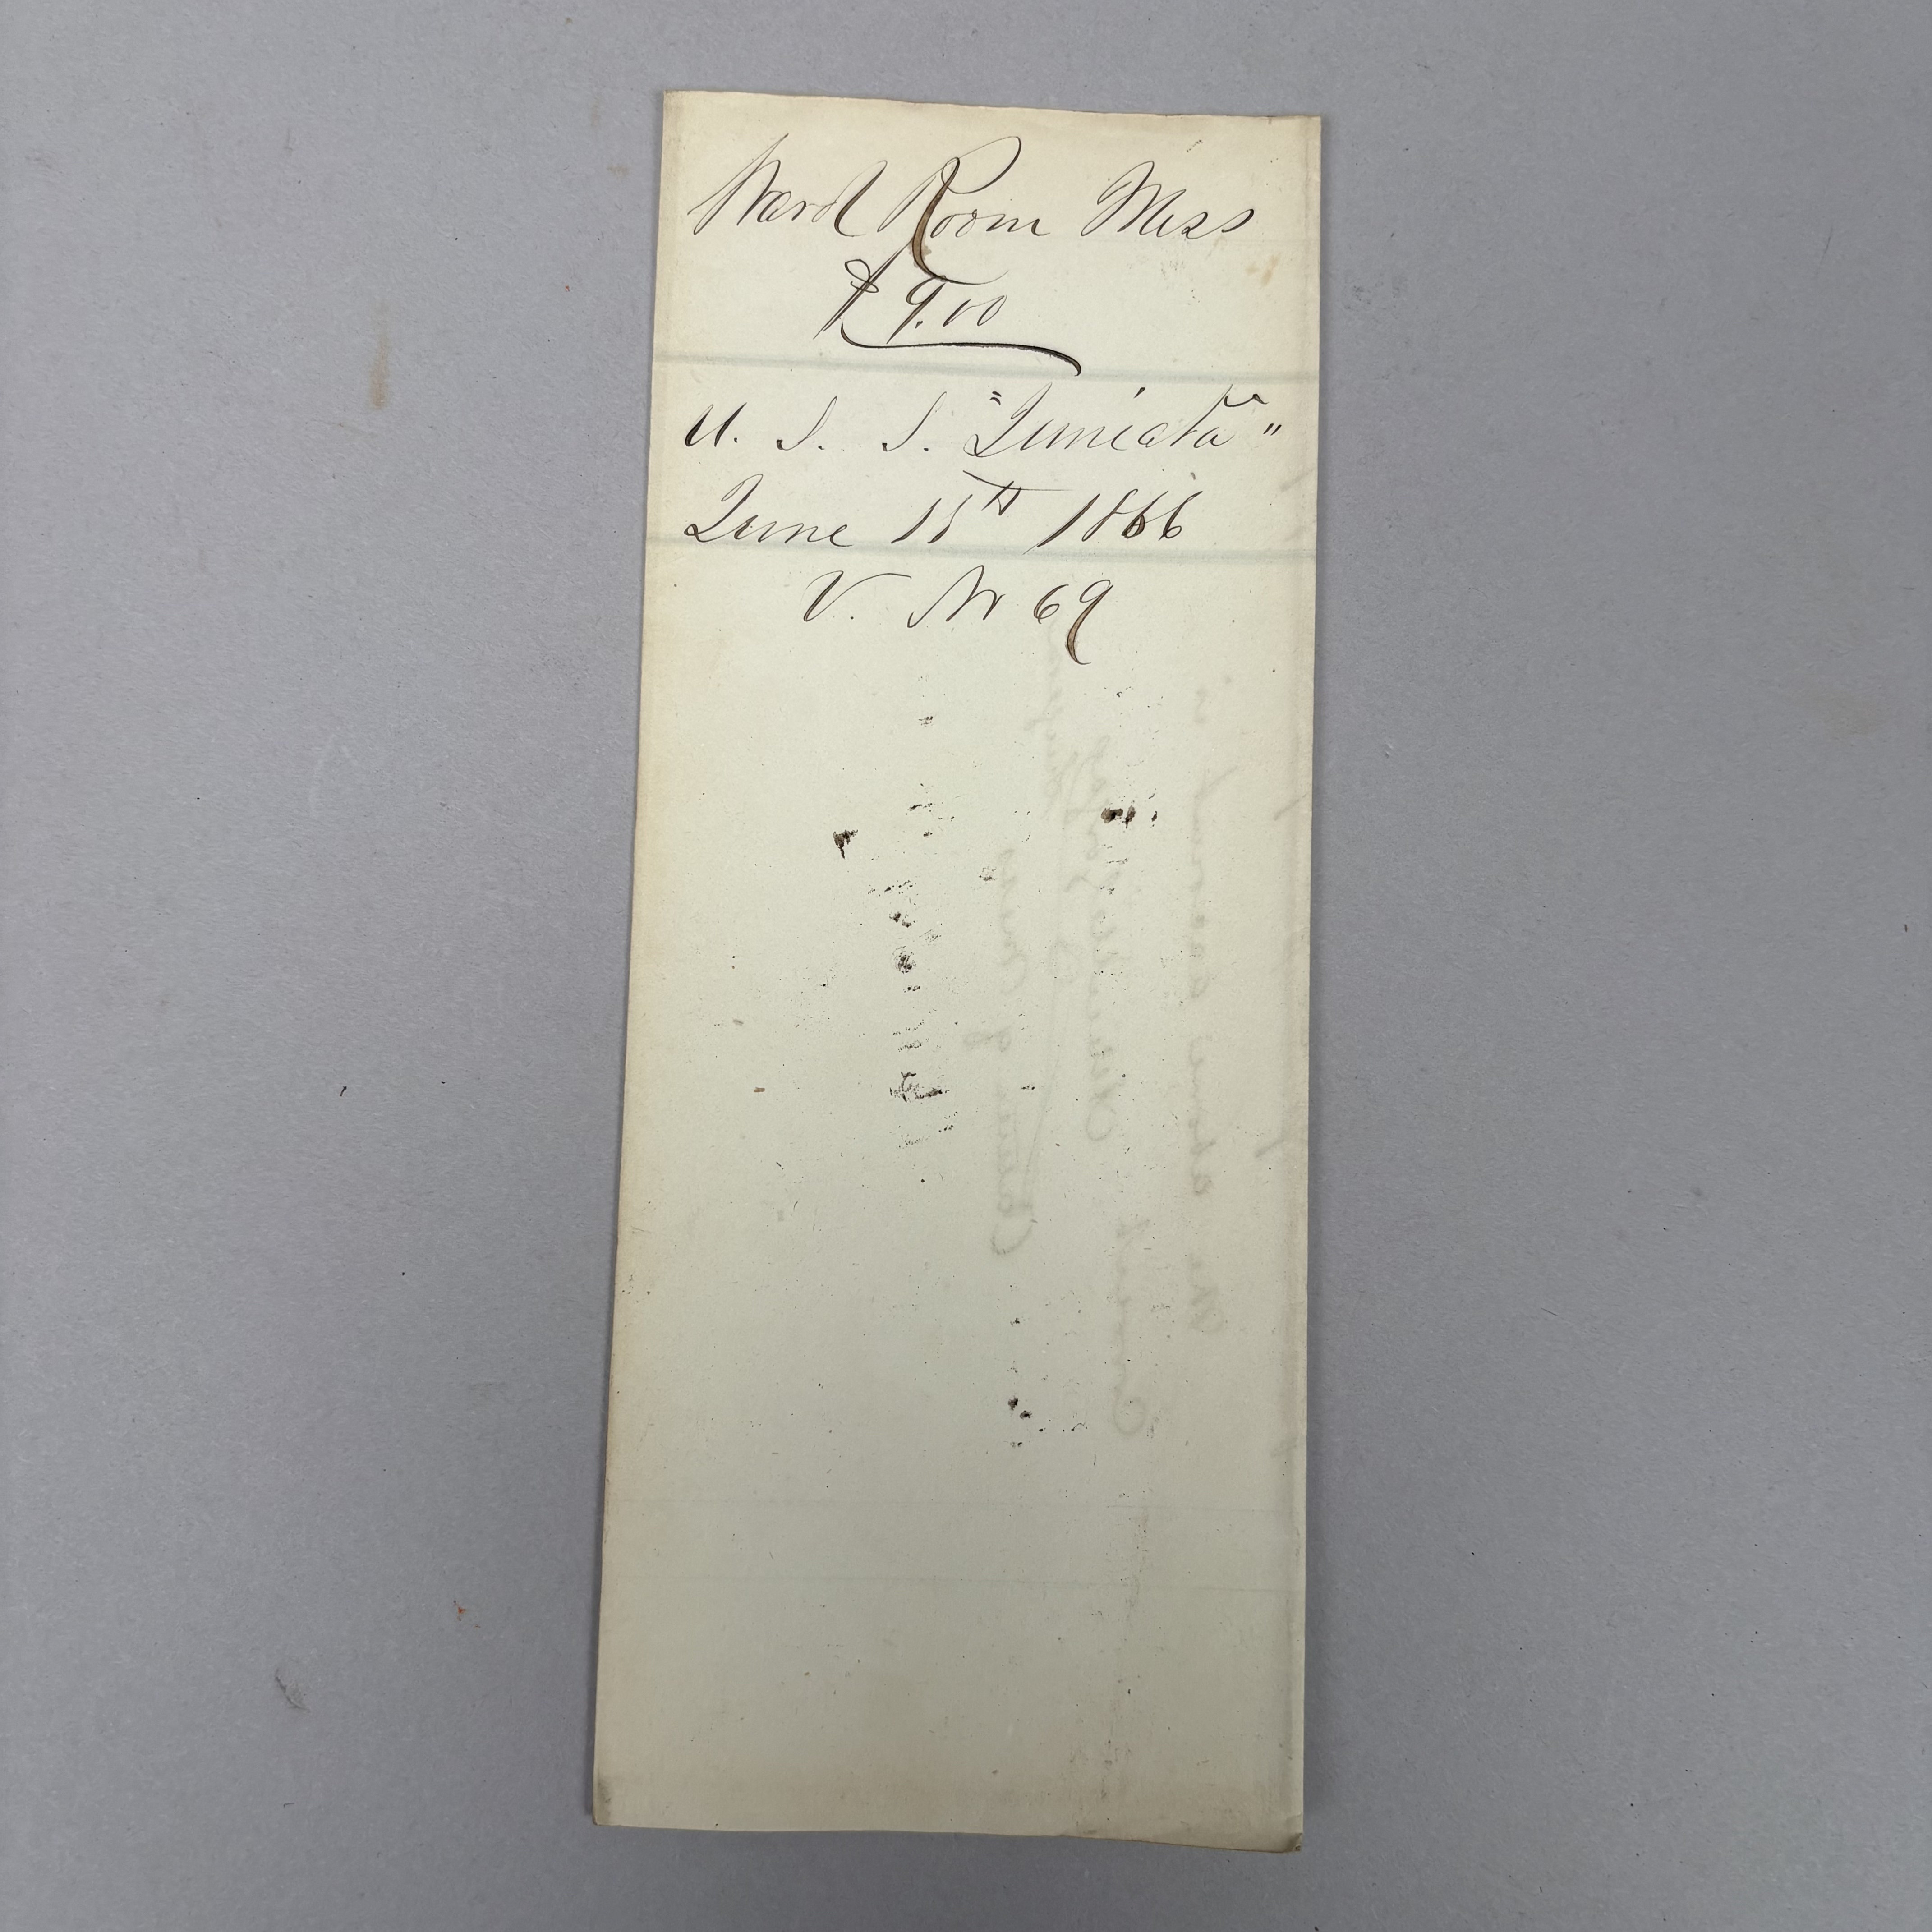 Ward Room Mess
$9.00
U. S. S. "Juniata"
June 15th 1866
V. No 69